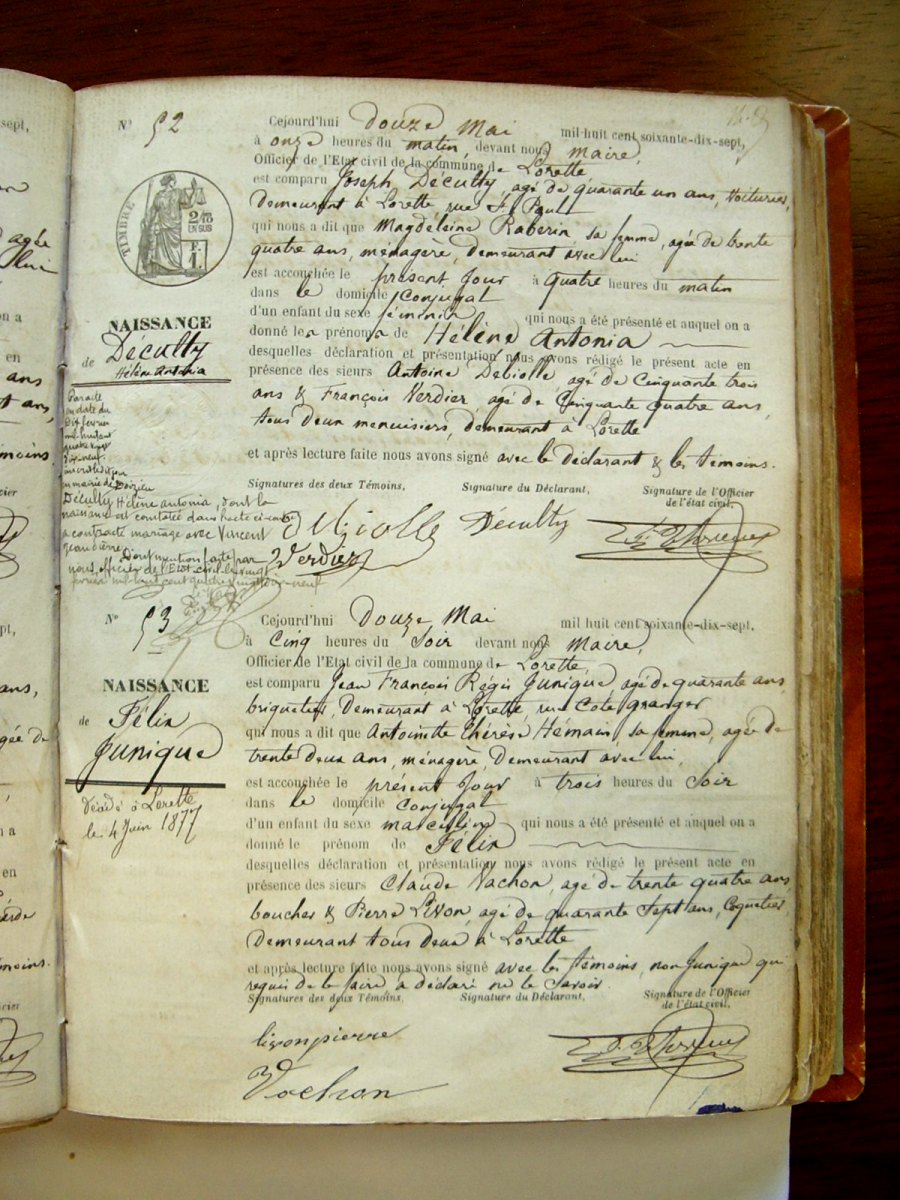 sept,
agée
on a
en
ans
moins.
cier
ans,
gée de
en
moins.
cier
N° 52
TIMBRE
2/10
EN SUS
F.
1.
NAISSANCE
de Déculty
Hélène Antonia
Par acte
en date du
dix février
mil huit cent
quatre vingt
dix neuf
inscrit le dit jour
en mairie de Doizieu
Déculty Hélène Antonia, dont la
naissance est constatée dans l'acte ci-contre
a contracté mariage avec Vincent
Dont mention faite par
nous, officier de l'Etat civil le vingt
février mil huit cent quatre vingt dix neuf
Cejourd'hui douze Mai mil-huit cent soixante-dix-sept,
à onze heures du matin, devant nous Maire,
Officier de l'Etat civil de la commune de Lorette
est comparu Joseph Déculty, agé de quarante un ans, Voiturier,
demeurant à Lorette rue St Paul
qui nous a dit que Magdeleine Raberin sa femme, agée de trente
quatre ans, ménagère, demeurant avec lui
est accouchée le présent jour à quatre heures du matin
dans le domicile conjugal
d'un enfant du sexe féminin qui nous a été présenté et auquel on a
donné le a prénom a de Hélène Antonia
desquelles déclaration et présentation nous avons rédigé le présent acte en
présence des sieurs Antoine Débiolle agé de Cinquante trois
ans & François Verdier, agé de Cinquante quatre ans,
tous deux menuisiers, demeurant à Lorette
et après lecture faite nous avons signé avec le déclarant & les témoins.
Signatures des deux Témoins, Signature du Déclarant, Signature de l'Officier
de l'état civil,
Déculty
Verdier
N° 53
NAISSANCE
de Félix
Junique
Décédé à Lorette
le 4 Juin 1877
Cejourd'hui Douze Mai mil huit cent soixante-dix-sept,
à Cinq heures du Soir devant nous Maire,
Officier de l'Etat civil de la commune de Lorette,
est comparu Jean François Régis Junique agé de quarante ans
briquetier, demeurant à Lorette, rue Côte granger
qui nous a dit que Antoinette Thérèse Hémain, sa femme, agée de
trente deux ans, ménagère, demeurant avec lui,
est accouchée le présent Jour à trois heures du Soir
dans le domicile conjugal
d'un enfant du sexe masculin qui nous a été présenté et auquel on a
donné le prénom de Félix
desquelles déclaration et présentation nous avons rédigé le présent acte en
présence des sieurs Claude Vachon, agé de trente quatre ans,
boucher & Pierre Livon, agé de quarante sept ans, Coquetier,
Demeurant tous deux à Lorette
et après lecture faite nous avons signé avec les témoins, non Junique qui
requis de le faire a déclaré ne le Savoir.
Signatures des deux Témoins, Signature du Déclarant, Signature de l'Officier
de l'état civil,
livonpierre
Vachon